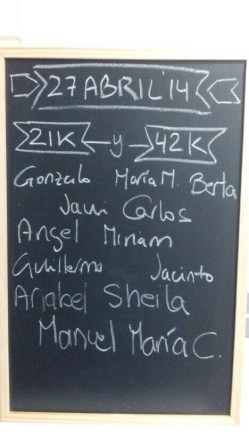 27 ABRIL '14
21K y 42K
Gonzalo María M. Berta
Javi Carlos
Angel Miriam
Guillermo Jacinto
Anabel Sheila
Manuel María C.